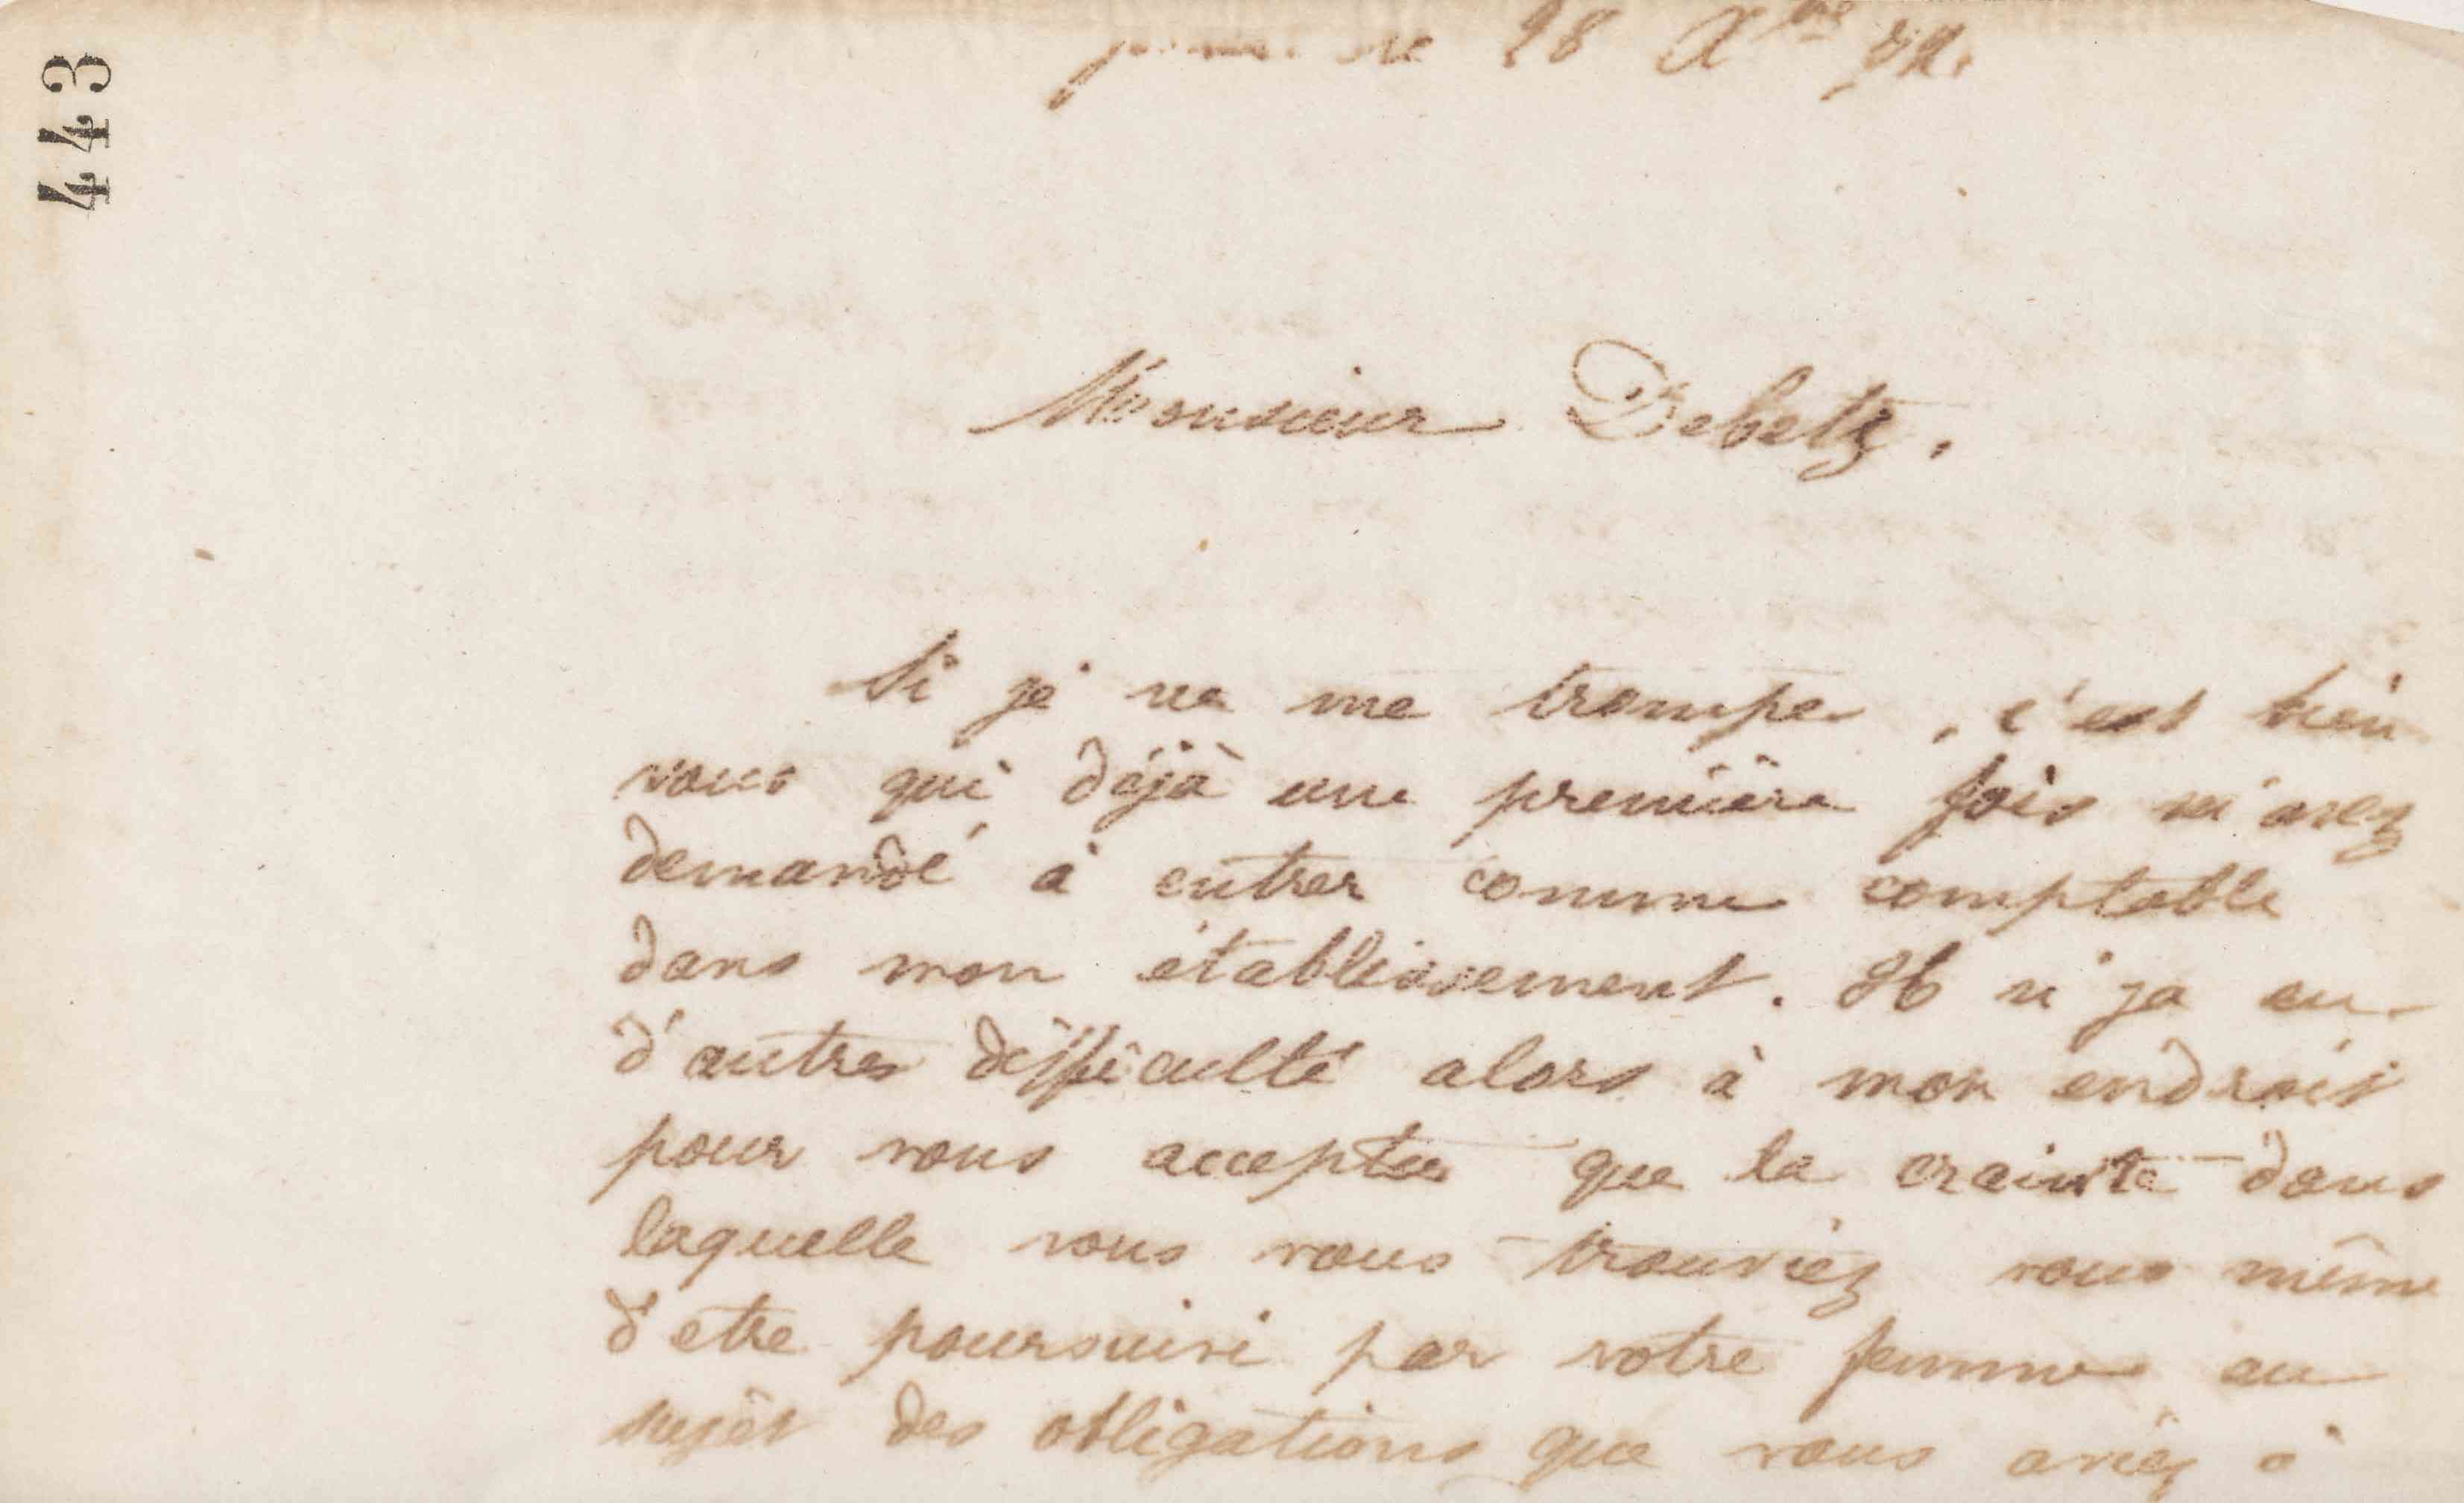 443
le 28 Xbre 82.
Monsieur Debetz.
Si je ne me trompe, c'est bien
vous qui déjà une première fois m'avez
demandé à entrer comme comptable
dans mon établissement. Il n'ya eu
d'autres difficulté alors à mon endroit
pour vous accepter que la crainte dans
laquelle vous vous trouviez vous même
d'etre poursuivi par votre femme au
sujet des obligations que vous aviez à